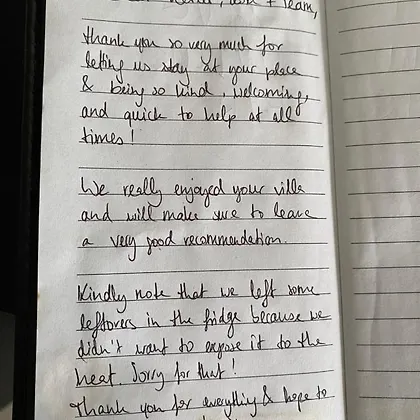 + Team,
thank you so very much for
letting us stay at your place
& being so kind, welcoming,
and quick to help at all
times!
We really enjoyed your villa
and will make sure to leave
a very good recommendation.
Kindly note that we left some
leftovers in the fridge because we
didn't want to expose it to the
heat. Sorry for that!
Thank you for everything & hope to